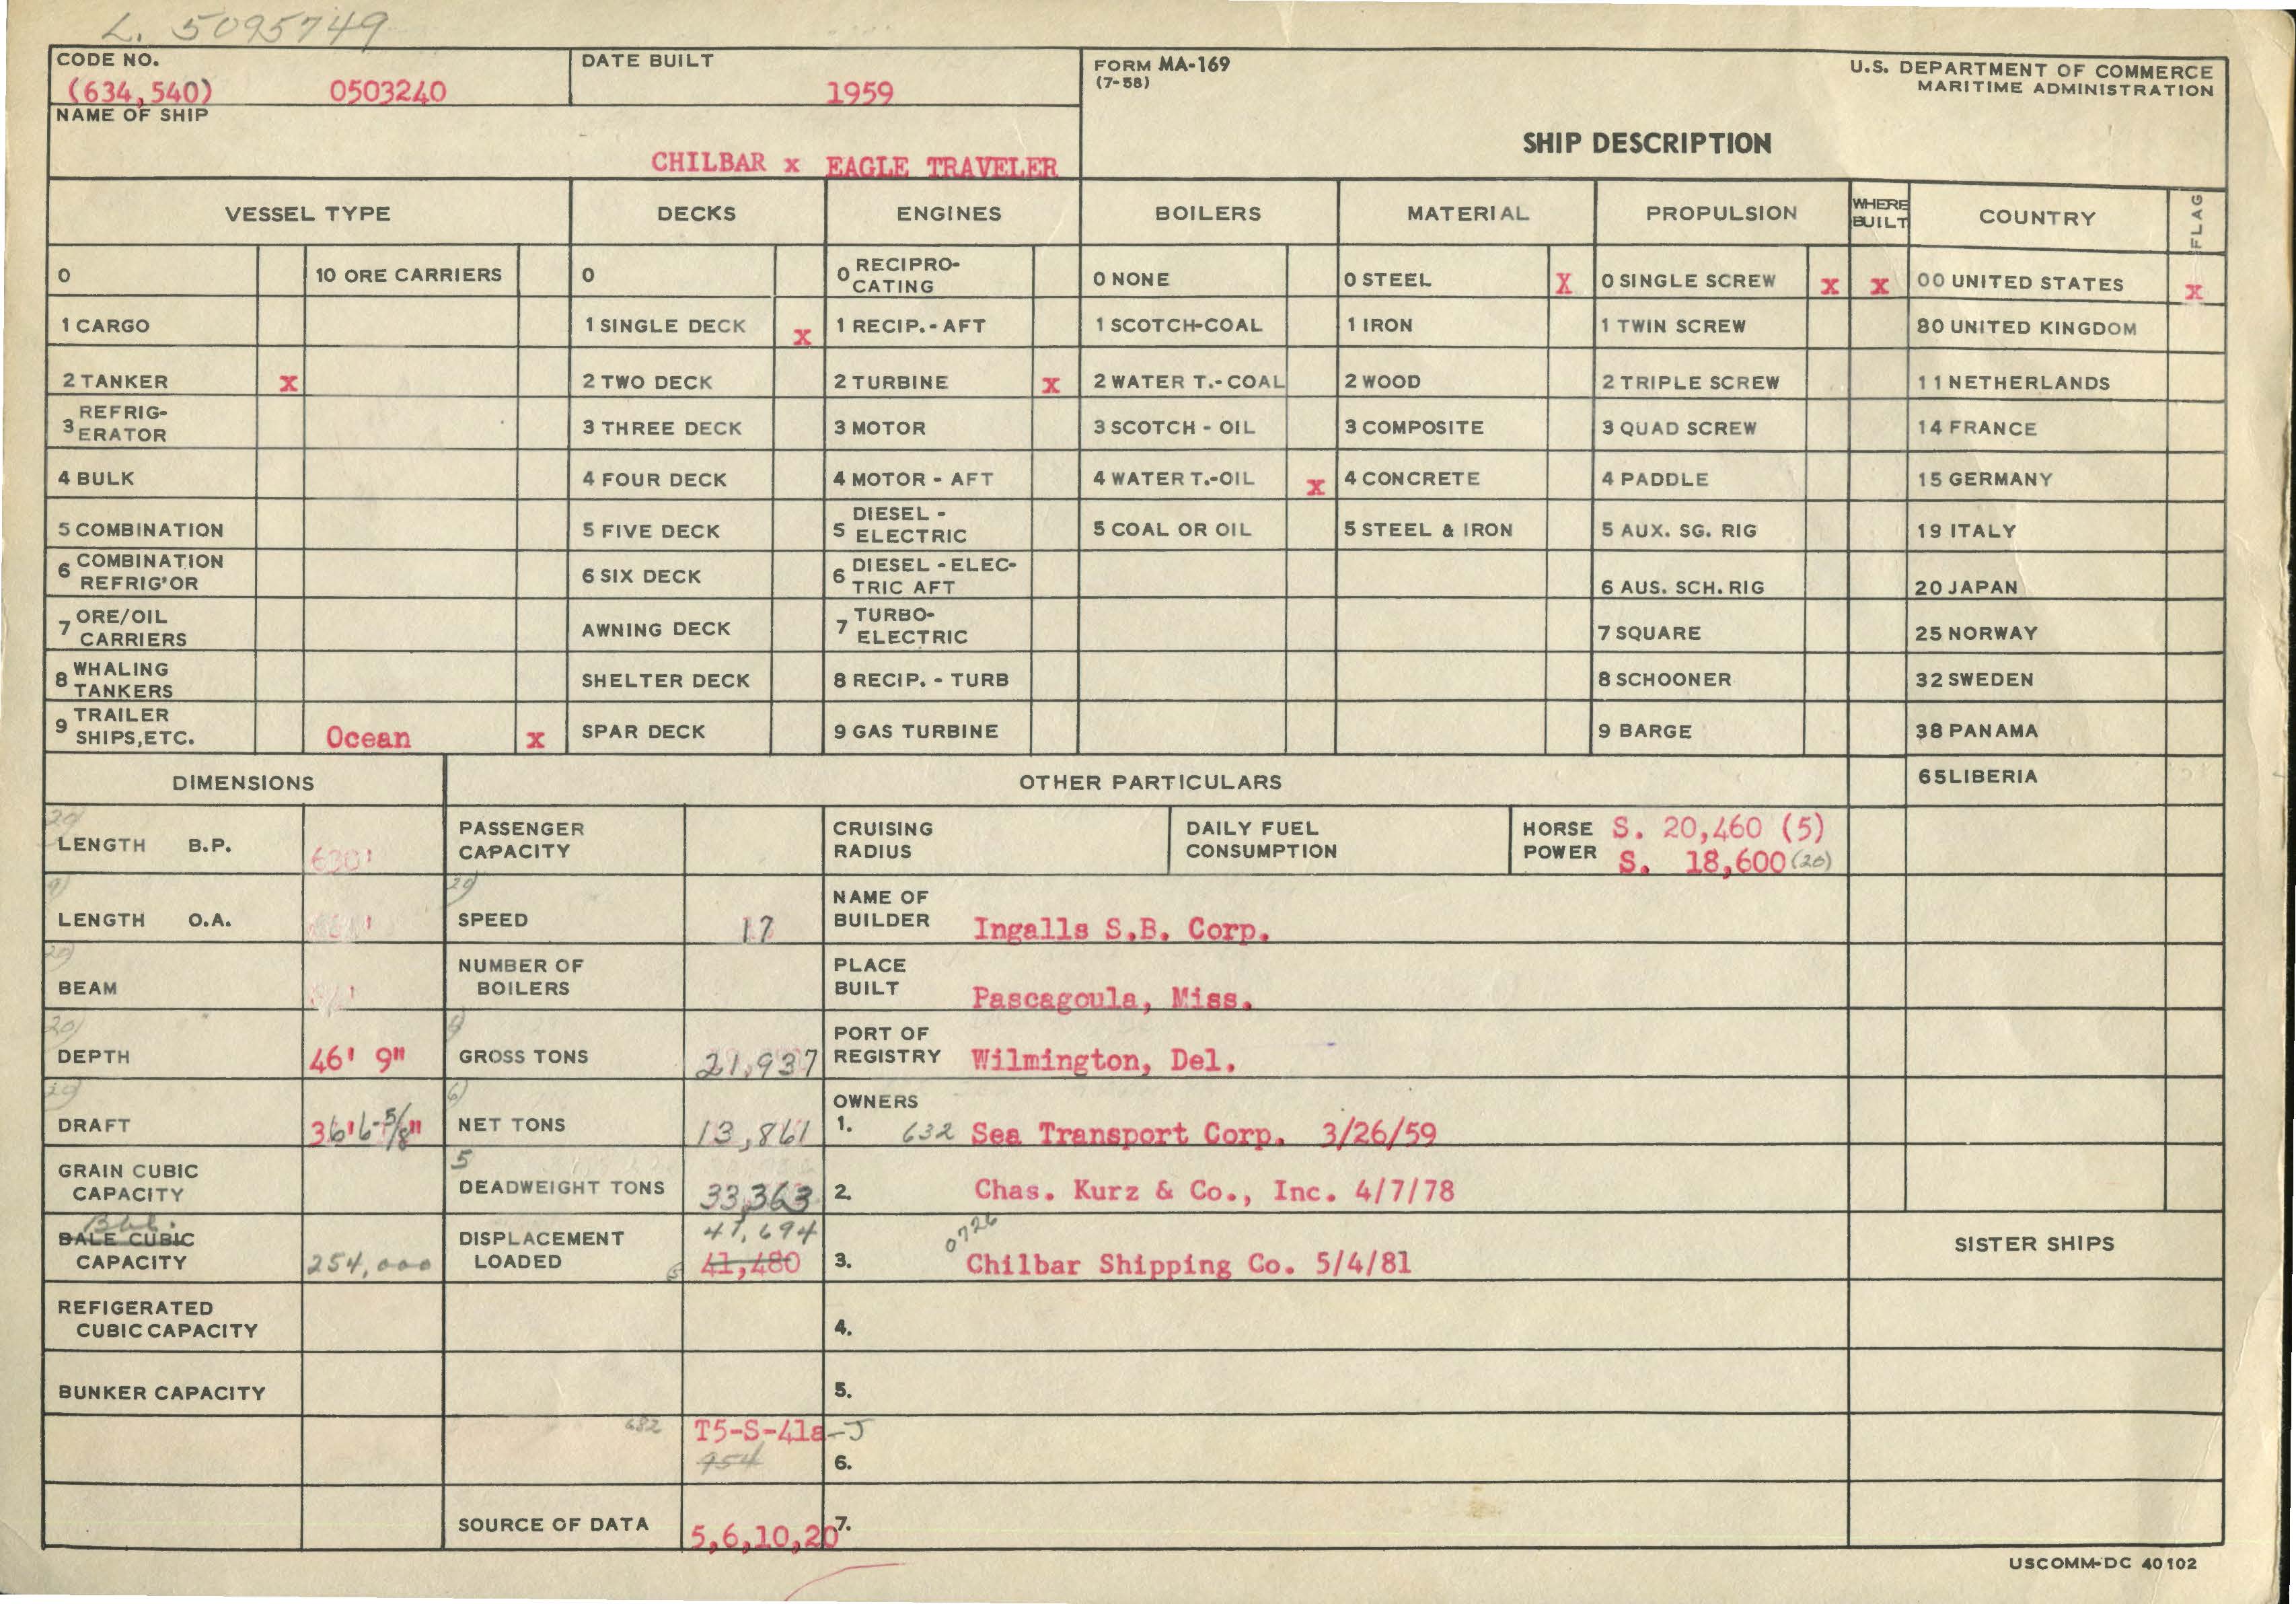 L. 5095749
CODE NO.
(634,540) 0503240
DATE BUILT
1959
FORM MA-169
(7-58)
U.S. DEPARTMENT OF COMMERCE
MARITIME ADMINISTRATION
NAME OF SHIP
CHILBAR x EAGLE TRAVELER
SHIP DESCRIPTION
VESSEL TYPE DECKS ENGINES BOILERS MATERIAL PROPULSION WHERE BUILT COUNTRY FLAG
0 10 ORE CARRIERS 0 0 RECIPRO-CATING 0 NONE 0 STEEL X 0 SINGLE SCREW x x 00 UNITED STATES x
1 CARGO 1 SINGLE DECK x 1 RECIP.-AFT 1 SCOTCH-COAL 1 IRON 1 TWIN SCREW 80 UNITED KINGDOM
2 TANKER x 2 TWO DECK 2 TURBINE x 2 WATER T.-COAL 2 WOOD 2 TRIPLE SCREW 11 NETHERLANDS
3 REFRIG-ERATOR 3 THREE DECK 3 MOTOR 3 SCOTCH - OIL 3 COMPOSITE 3 QUAD SCREW 14 FRANCE
4 BULK 4 FOUR DECK 4 MOTOR - AFT 4 WATER T.-OIL x 4 CONCRETE 4 PADDLE 15 GERMANY
5 COMBINATION 5 FIVE DECK 5 DIESEL - ELECTRIC 5 COAL OR OIL 5 STEEL & IRON 5 AUX. SG. RIG 19 ITALY
6 COMBINATION REFRIG'OR 6 SIX DECK 6 DIESEL - ELEC-TRIC AFT 6 AUS. SCH. RIG 20 JAPAN
7 ORE/OIL CARRIERS AWNING DECK 7 TURBO-ELECTRIC 7 SQUARE 25 NORWAY
8 WHALING TANKERS SHELTER DECK 8 RECIP. - TURB 8 SCHOONER 32 SWEDEN
9 TRAILER SHIPS, ETC. Ocean x SPAR DECK 9 GAS TURBINE 9 BARGE 38 PANAMA
DIMENSIONS OTHER PARTICULARS 65 LIBERIA
20)
LENGTH B.P. 630'
PASSENGER CAPACITY
CRUISING RADIUS
DAILY FUEL CONSUMPTION
HORSE POWER S. 20,460 (5)
S. 18,600 (20)
LENGTH O.A.
SPEED 17
NAME OF BUILDER Ingalls S.B. Corp.
20)
BEAM
NUMBER OF BOILERS
PLACE BUILT Pascagoula, Miss.
20)
DEPTH 46' 9"
GROSS TONS 21,937
PORT OF REGISTRY Wilmington, Del.
DRAFT 36'6-5/8"
6)
NET TONS 13,861
OWNERS
1. 632 Sea Transport Corp. 3/26/59
GRAIN CUBIC CAPACITY
5
DEADWEIGHT TONS 33,363
2. Chas. Kurz & Co., Inc. 4/7/78
Bbl.
BALE CUBIC CAPACITY 254,000
DISPLACEMENT LOADED 41,694
41,480
0726
3. Chilbar Shipping Co. 5/4/81
SISTER SHIPS
REFIGERATED CUBIC CAPACITY
4.
BUNKER CAPACITY
5.
682 T5-S-41a-J
954
6.
SOURCE OF DATA 5,6,10,20
7.
USCOMM-DC 40102